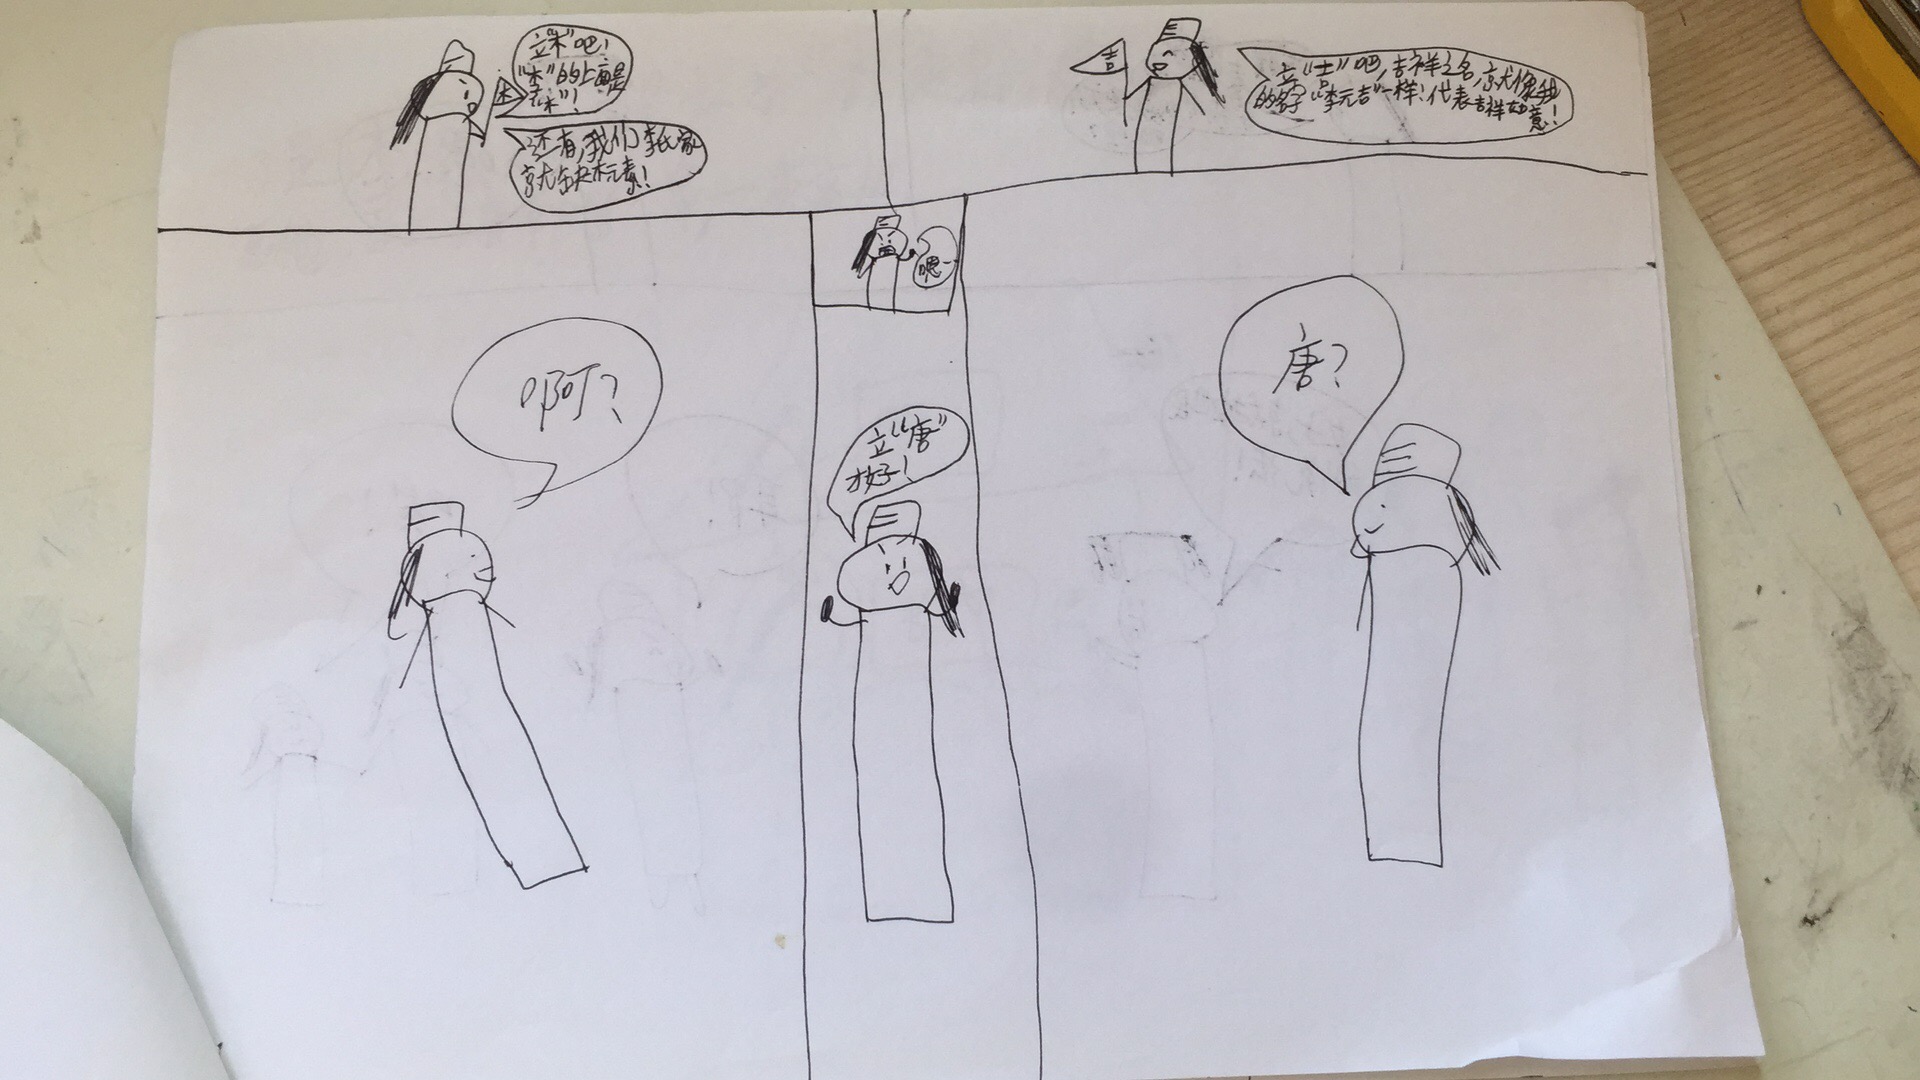 立“木”吧！
“李”的上面是
“木”！
木
还有，我们李氏家
就缺木元素！
吉
立“吉”吧，吉祥之名，就像我
的名字“李元吉”一样！代表吉祥如
意！
嗯…
啊？
立“唐”
才好！
唐？